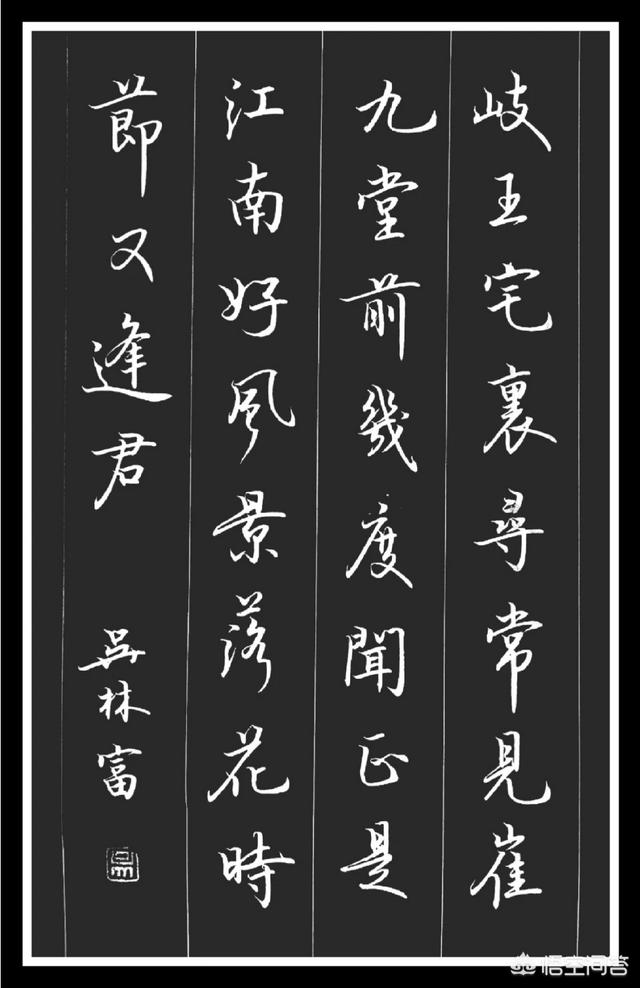 岐王宅裏尋常見崔
九堂前幾度聞正是
江南好風景落花時
節又逢君
吳林富
悟空问答